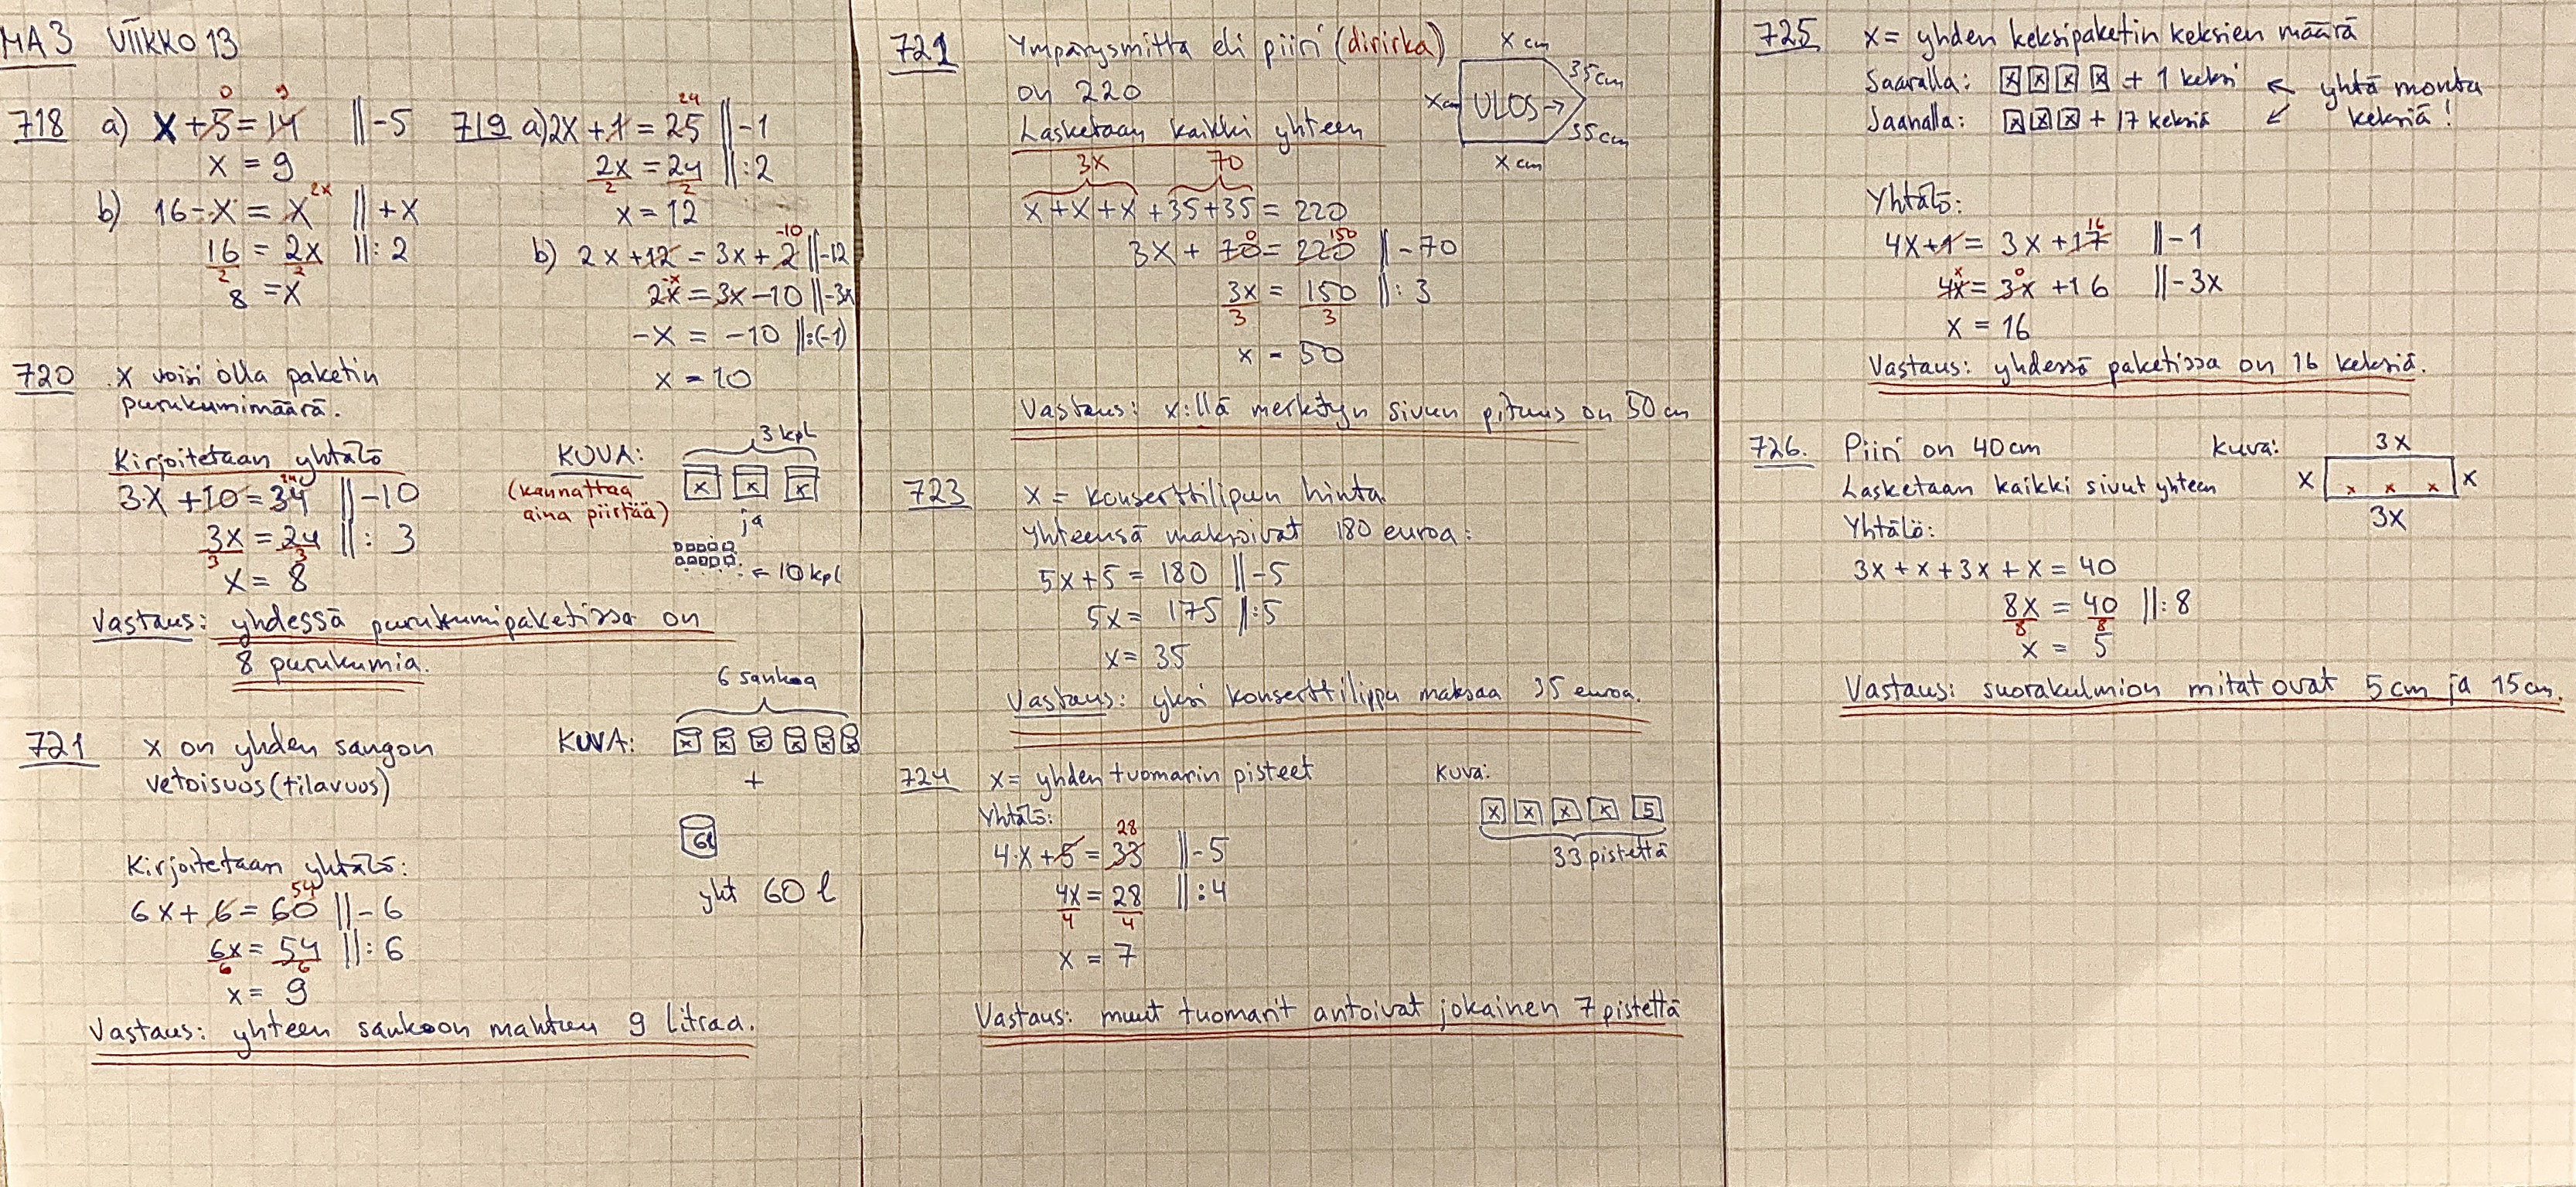 MA3 VIIKKO 13
718 a) x + 5 = 14 ||-5
0 9
x = 9
b) 16 - x = x ||+x
2x
16 = 2x ||: 2
2 2
8 = x
719 a) 2x + 1 = 25 ||-1
24
2x = 24 ||: 2
2 2
x = 12
b) 2x + 12 = 3x + 2 ||-12
-10
2x = 3x - 10 ||-3x
-x
-x = -10 ||:(-1)
x = 10
720 x voisi olla paketin
purukumimäärä.
Kirjoitetaan yhtälö
3·x + 10 = 34 ||-10
24
3x = 24 ||: 3
3 3
x = 8
KUVA:
(kannattaa
aina piirtää)
3 kpl
x x x
ja
← 10 kpl
Vastaus: yhdessä purukumipaketissa on
8 purukumia.
721 x on yhden sangon
vetoisuus (tilavuus)
KUVA:
6 sankoa
x x x x x x
+
6l
yht 60 l
Kirjoitetaan yhtälö:
6x + 6 = 60 ||-6
54
6x = 54 ||: 6
6 6
x = 9
Vastaus: yhteen sankoon mahtuu 9 litraa.
721 Ympärysmitta eli piiri (dirirka)
on 220
Lasketaan kaikki yhteen
x cm
35cm
x cm ULOS →
35cm
x cm
3x 70
x + x + x + 35 + 35 = 220
3x + 70 = 220 ||-70
0 150
3x = 150 ||: 3
3 3
x = 50
Vastaus: x:llä merkityn sivun pituus on 50 cm
723 x = konserttilipun hinta.
Yhteensä maksoivat 180 euroa:
5x + 5 = 180 ||-5
5x = 175 ||:5
x = 35
Vastaus: yksi konserttilippu maksaa 35 euroa.
724 x = yhden tuomarin pisteet
Kuva:
x x x x 5
33 pistettä
Yhtälö:
28
4·x + 5 = 33 ||-5
4x = 28 ||: 4
4 4
x = 7
Vastaus: muut tuomarit antoivat jokainen 7 pistettä
725 x = yhden keksipaketin keksien määrä
Saaralla: x x x x + 1 keksi ← yhtä monta
Jaanalla: x x x + 17 keksiä ↙ keksiä!
Yhtälö:
16
4x + 1 = 3x + 17 ||-1
x 0
4x = 3x + 16 ||-3x
x = 16
Vastaus: yhdessä paketissa on 16 keksiä.
726. Piiri on 40cm
Kuva:
3x
x x x x x
3x
Lasketaan kaikki sivut yhteen
Yhtälö:
3x + x + 3x + x = 40
8x = 40 ||: 8
8 8
x = 5
Vastaus: suorakulmion mitat ovat 5cm ja 15cm.